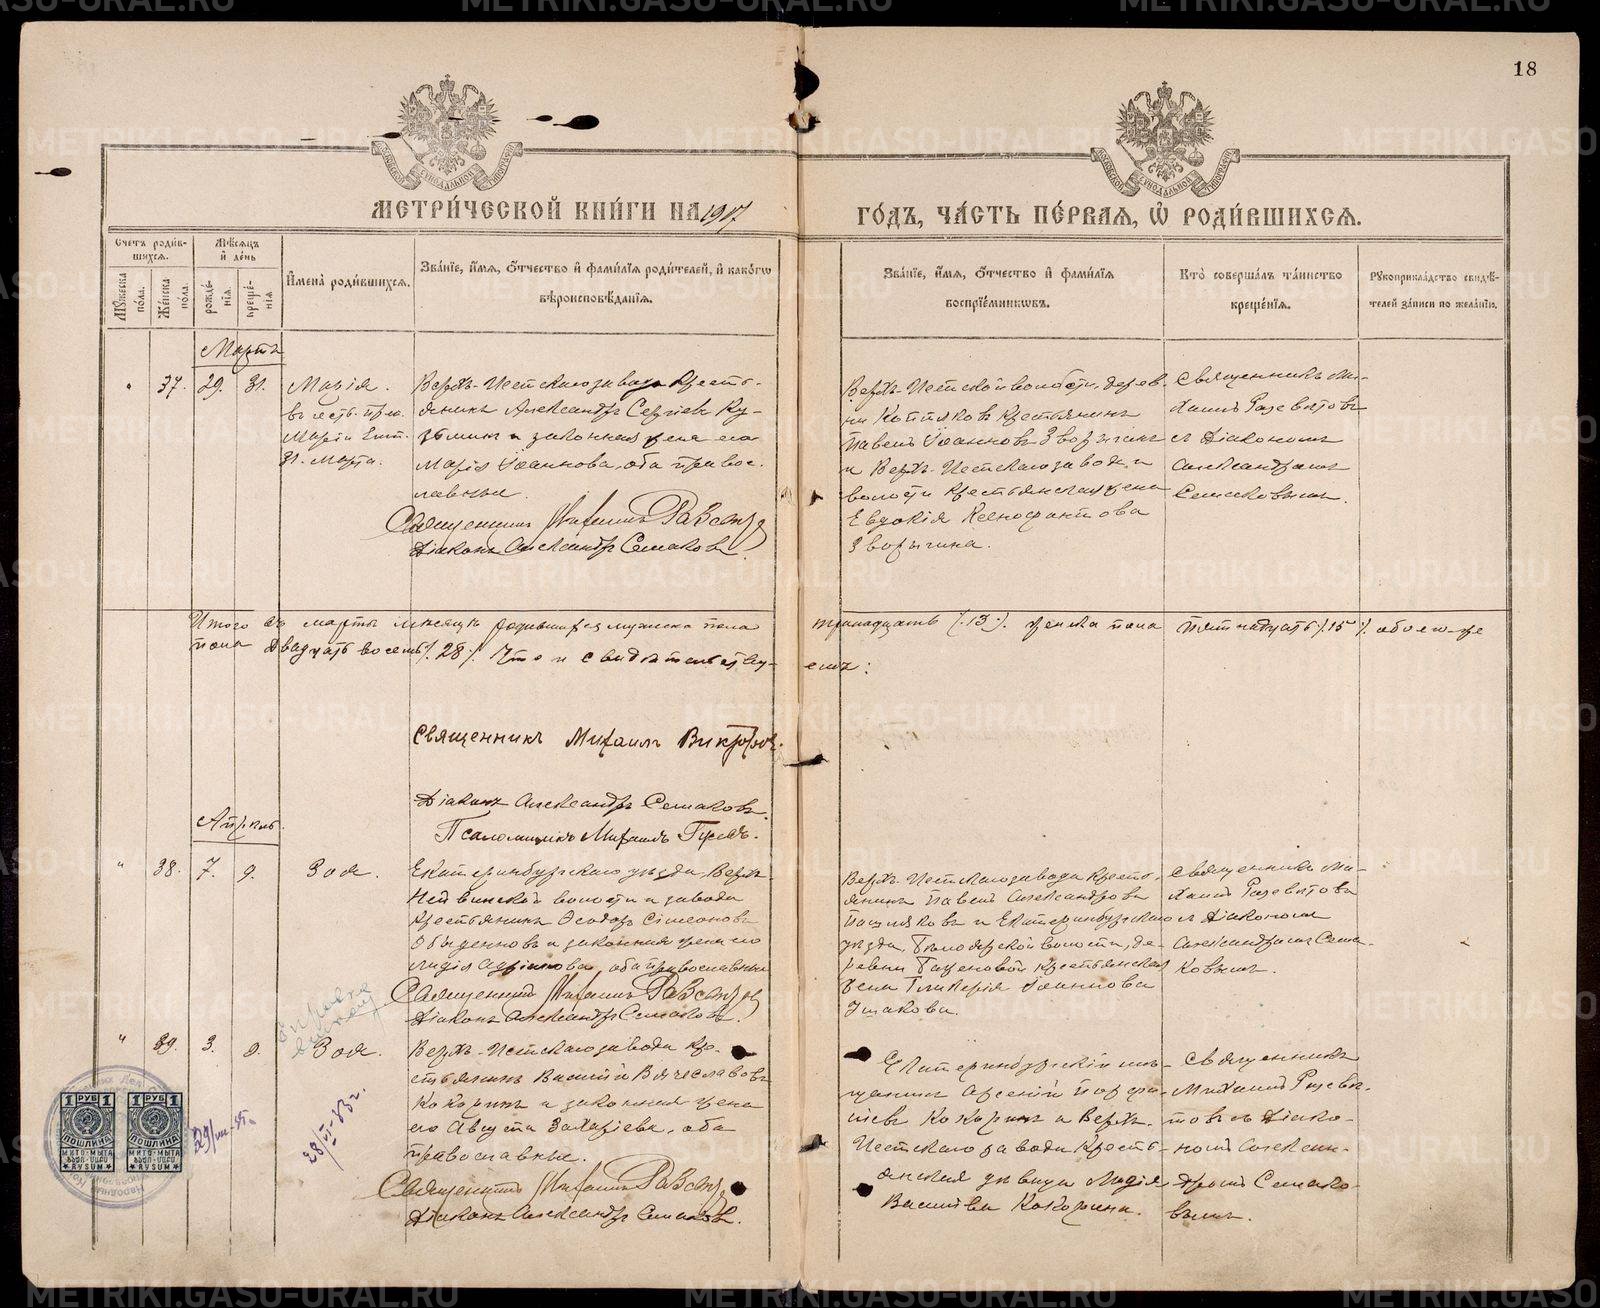 18
МЕТРИ́ЧЕСКОЙ КНИ́ГИ НА 1907 ГО́ДЪ, ЧА́СТЬ ПЕ́РВАЯ, Ѡ҆ РОДИ́ВШИХСѦ.
Счетъ роди́вшихсѧ.
Мꙋжеска пола.
Же́нска по́ла.
Мѣ́сѧцъ и҆ де́нь
рожде́нїѧ.
креще́нїѧ
И҆мена̀ роди́вшихсѧ.
Зва́нїе, и҆́мѧ, ѻ҆́тчество и҆ фами́лїѧ роди́телей, и҆ како́гѡ
вѣроисповѣ́данїѧ.
Зва́нїе, и҆́мѧ, ѻ҆́тчество и҆ фами́лїѧ
воспрїе́мникѡвъ.
Кто̀ соверша́лъ та́инство
креще́нїѧ.
Рꙋкоприкла́дство свидѣ́телей за́писи по жела́нїю.
Мартъ
" 37. 29. 31.
Марія.
въ честь пре.
Маріи Егип.
31. Марта.
Верхъ-Исетскаго завода кресть-
янинъ Александръ Сергіевъ Ку-
зьминъ и законная жена его
Марія Іоаннова, оба право-
славные.
Священникъ Михаилъ
Діаконъ Александръ Семаковъ.
Верхъ-Исетской волости, дерев-
ни Коптяковъ крестьянинъ
Павелъ Іоанновъ Зворыгинъ
и Верхъ-Исетскаго завода и
волости крестьянская жена
Евдокія Ксенофонтова
Зворыгина.
Священникъ Ми-
хаилъ
съ Діакономъ
Александромъ
Семаковымъ.
Итого въ мартѣ мѣсяцѣ родившихся мужеска пола тринадцать /.13./. женска пола пятнадцать /.15./. обоего-же
пола двадцать восемь /.28./. Что и свидѣтельству- емъ:
Священникъ Михаилъ
Діаконъ Александръ Семаковъ.
Псаломщикъ Михаилъ Гусевъ.
Апрѣль.
" 38. 7. 9.
Зоя.
Екатеринбургскаго уѣзда, Верхъ-
Нейвинской волости и завода
крестьянинъ Ѳеодоръ Симеоновъ
Обыденновъ и законная жена его
Лидія Адріанова, оба православные
Священникъ Михаилъ
Діаконъ Александръ Семаковъ.
Верхъ-Исетскаго завода кресть-
янинъ Павелъ Александровъ
и Екатеринбургскаго
уѣзда, волости, де-
ревни крестьянская
жена Гликерія Іоаннова
Ушакова.
Священникъ Ми-
хаилъ
съ Діакономъ
Александромъ Сема-
ковымъ.
" 39. 3. 9.
Зоя.
Верхъ-Исетскаго завода кре-
стьянинъ Василій Вячеславовъ
Кокоринъ и законная жена
его Августа Захаріева, оба
православные.
Священникъ Михаилъ
Діаконъ Александръ Семаковъ.
Екатеринбургскій мѣ-
щанинъ Арсеній Порфи-
ріевъ Кокоринъ и Верхъ-
Исетскаго завода кресть-
янская дѣвица Лидія
Васильева Кокорина.
Священникъ
Михаилъ
съ Діако-
номъ Алексан-
дромъ Семако-
вымъ.
28/VI-83г.
1 РУБ 1
ПОШЛИНА
1 РУБ 1
ПОШЛИНА
METRIKI.GASO-URAL.RU